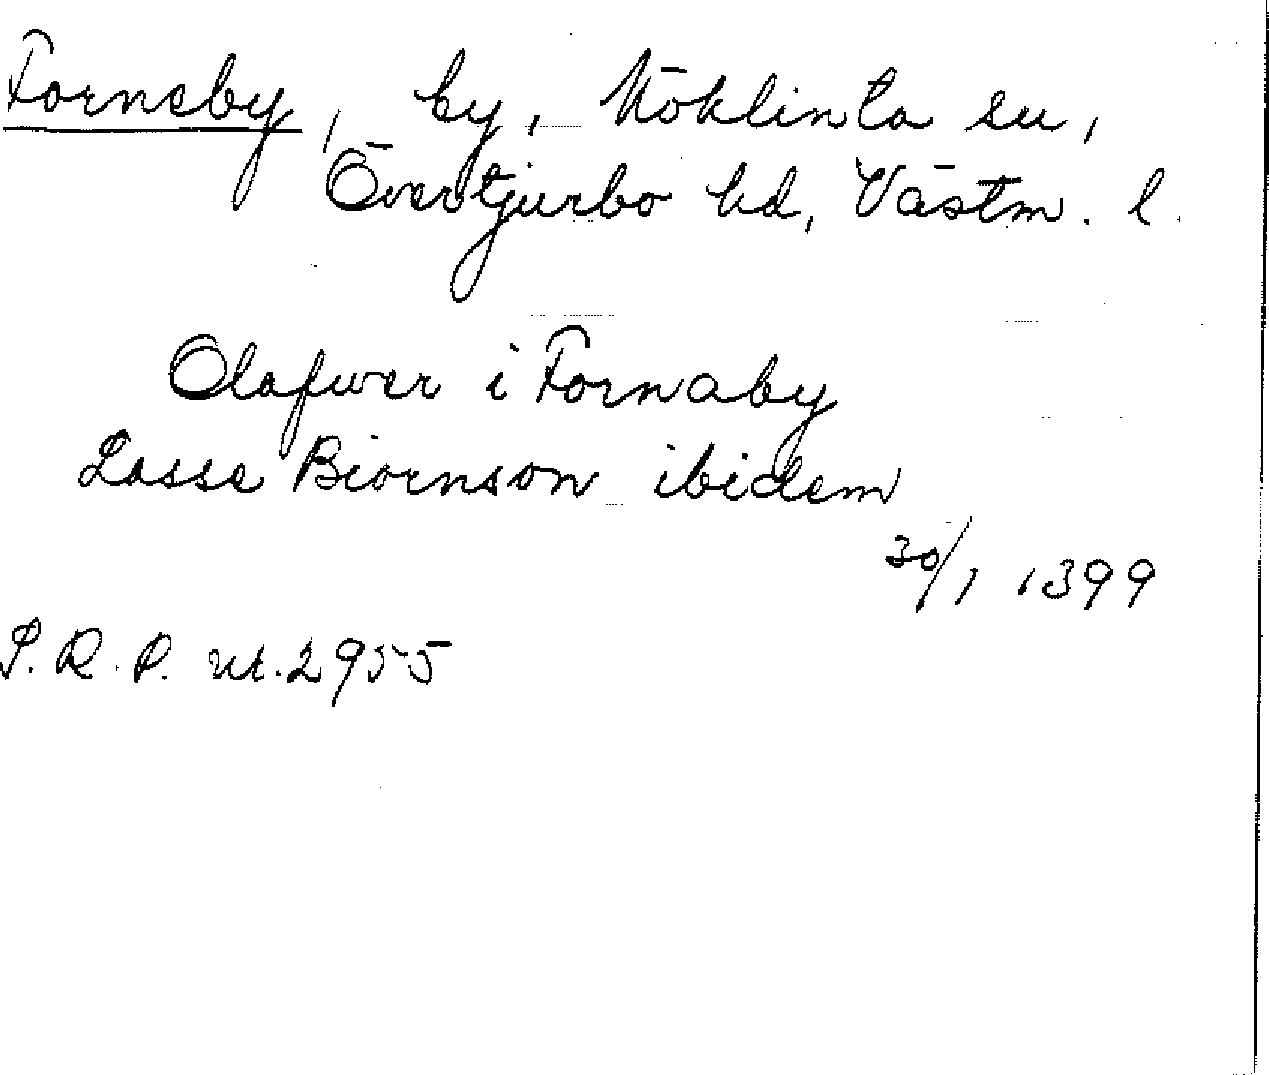 Forneby, by, Möklinta sn,
Övertjurbo hd, Västm. l.
Olafwer i Fornaby
Lasse Biornson ibidem
30/1 1399
S.R.P. nr. 2955